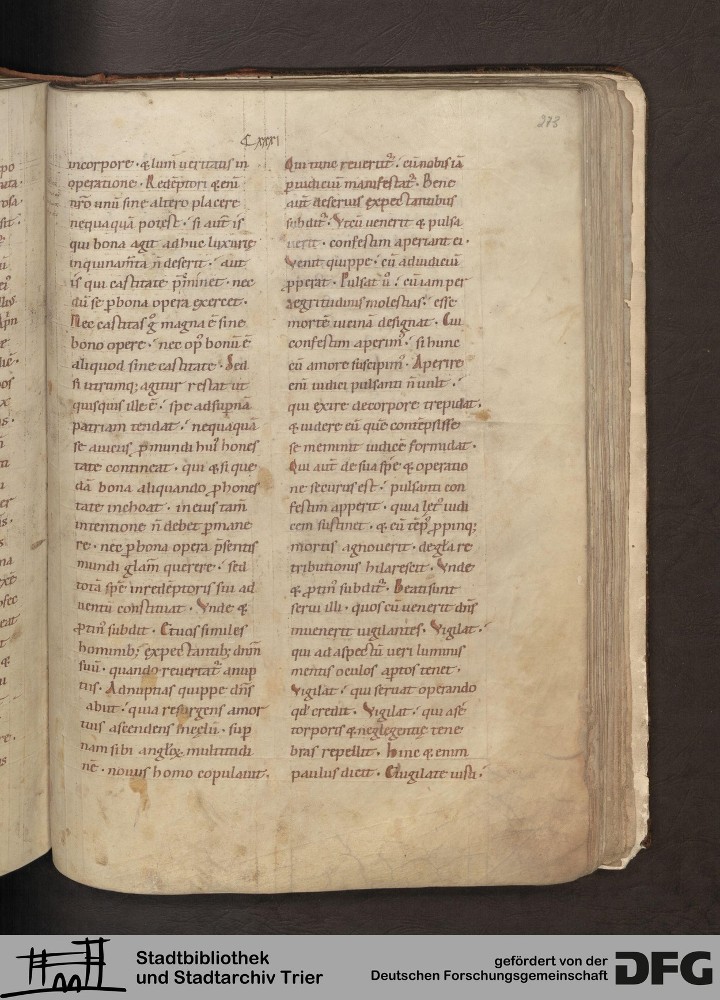 278
Cxxxi
incorpore · & lum̄ ueritatis in
operatione · Redēptori & eni
nr̄o unū sine altero placere
nequaquā potest · si aut̄ is
qui bona agit adhuc luxurie
inquinam̄ta n̄ deserit · aut
is qui castitate p̄minet · nec
dū se p bona opera exercet ·
Nec castitas g̊ magna ē sine
bono opere · nec op' bonū ē
aliquod sine castitate · Sed
si utrumq; agitur restat ut
quisquis ille ē · spe ad sup̄nā
patriam tendat · nequaquā
se a uiciis p mundi hui' hones
tate contineat · qui & si que
dā bona aliquando p hones
tate inchoat · in eius tam̄
intentione n̄ debet p mane
re · nec p bona opera p̄sentis
mundi glam̄ querere · sed
totā spē in redēptoris sui ad
uentū constituat · Vnde &
ptin' subdit · Et uos similes
hominib; expectantib; dnm̄
suū · quando reuertat̄ a nup
tiis · Ad nuptias quippe dn̄s
abiit · quia resurgens a mor
tuis ascendens in celū · sup
nam sibi anglox multitudi
nē · nouus homo copulauit ·
Qui tunc reuertit̄ · cū nobis iā
p iudiciū manifestat̄ · Bene
aut̄ de seruis expectantibus
subdit̄ · Vt cū uenerit & pulsa
uerit · confestim aperiant ei ·
Venit quippe · cū ad iudiciū
pperat · Pulsat ū · cū iam per
aegritudinis molestias · esse
mortē uicinā designat · Cui
confestim aperim' · si hunc
cū amore suscipim' · Aperire
enī iudici pulsanti n̄ uult ·
qui exire de corpore trepidat ·
& uidere eū quē contēpsisse
se meminit iudicē formidat ·
Qui aut̄ de sua spē & operatio
ne securus est · pulsanti con
festim apperit · quia let' iudi
cem sustinet · & cū tēp' ppinq;
mortis agnouerit · de gla re
tributionis hilarescit · Vnde
& ptin' subdit̄ · Beati sunt
serui illi · quos cū uenerit dn̄s
inuenerit uigilantes · Vigilat ·
qui ad aspectū ueri luminis
mentis oculos aptos tenet ·
Vigilat · qui seruat operando
qd' credit · Vigilat · qui a se
torporis & neglegentie tene
bras repellit · Hinc & enim
paulus dicit · Euigilate iusti ·
Stadtbibliothek
und Stadtarchiv Trier
gefördert von der
Deutschen Forschungsgemeinschaft
DFG